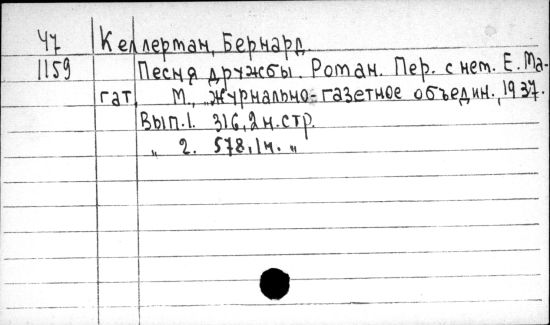 Ч7 Келлерман, Бернард.
1159 Песня дружбы. Роман. Пер. с нем. Е. Ма-
гат. М., Журнально-газетное объедин., 1937.
Вып. 1. 316, 2 н. стр.
„ 2. 578, 1 н. „